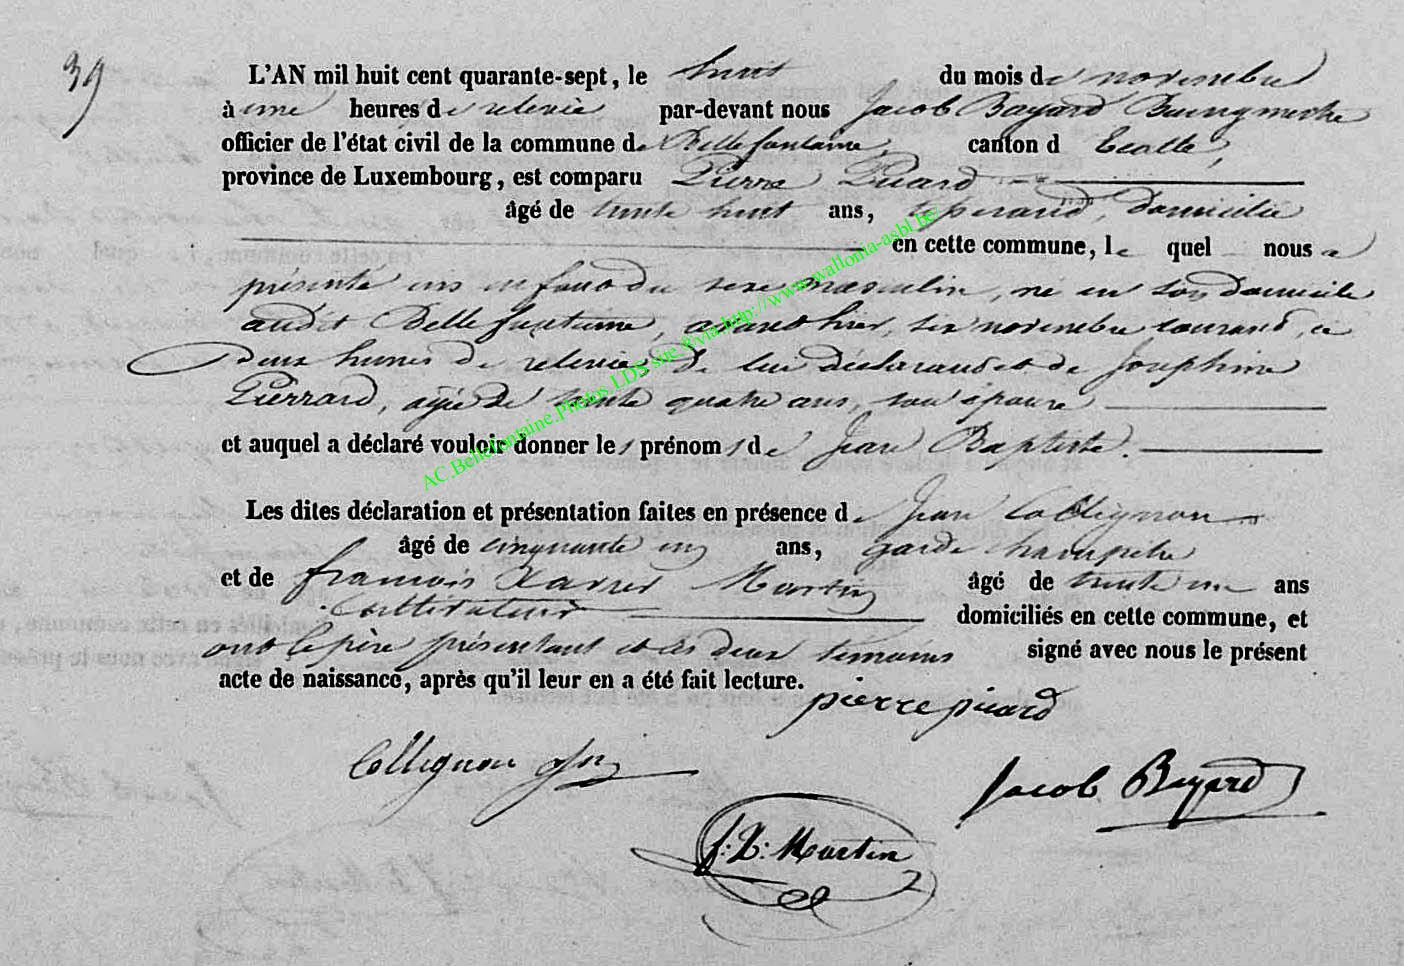 39
L'AN mil huit cent quarante-sept, le huit du mois de novembre
à une heures de relevée par-devant nous Jacob Bayard Bourgmestre
officier de l'état civil de la commune de Bellefontaine, canton d'Etalle,
province de Luxembourg, est comparu Pierre Picard
âgé de trente huit ans, domicilié
en cette commune, le quel nous a
présenté un enfant du sexe masculin, né en son domicile
audit Bellefontaine, avant hier, six novembre courant, à
deux heures de relevée, de lui déclarant et de Josephine
Pierrard, agée de trente quatre ans, son épouse
et auquel a déclaré vouloir donner les prénoms de Jean Baptiste.
Les dites déclaration et présentation faites en présence de Jean Collignon
âgé de cinquante un ans, garde champêtre
et de François Xavier Martin âgé de trente un ans
cultivateur domiciliés en cette commune, et
ont le père présentant et les deux témoins signé avec nous le présent
acte de naissance, après qu'il leur en a été fait lecture.
pierre picard
Collignon
Jacob Bayard
f: X: Martin
AC.Bellefontaine.Photos.LDS.site.&via.http://www.wallonia-asbl.be/